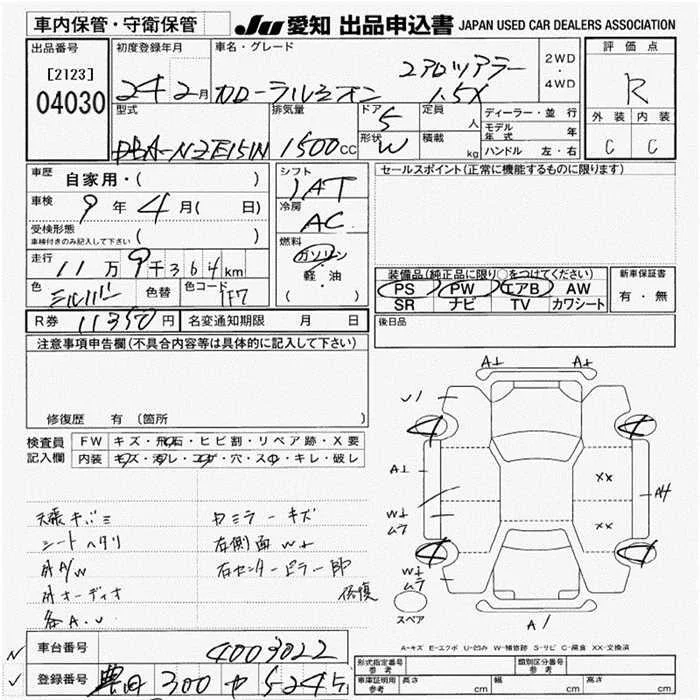 車内保管・守衛保管
JU 愛知 出品申込書 JAPAN USED CAR DEALERS ASSOCIATION
出品番号 初度登録年月 車名・グレード 2WD・4WD 評価点
[2123]
04030 24 2月 カローラルミオン 1.5X R
外装 内装
C C
型式 排気量 ドア 5 定員 人 ディーラー・並行
モデル年式 年
DBA-NZE151N 1500cc 形状 W 積載 kg ハンドル 左・右
車歴 自家用・( )
シフト IAT
セールスポイント(正常に機能するものに限ります)
車検 9年4月( 日)
冷房 AC
受検形態
車検付きのみ記入して下さい ( )
燃料 ガソリン・軽・油 ( ・ )
走行 11万9千364km
装備品(純正品に限り○をつけてください) 新車保証書
PS PW エアB AW 有・無
SR ナビ TV カワシート
色 シルバー 色替 色コード 1F7
R券 11350円 名変通知期限 月 日
後日品
注意事項申告欄(不具合内容等は具体的に記入して下さい)
修復歴 有 (箇所 )
検査員記入欄 FW キズ・飛石・ヒビ割・リペア跡・X要
内装 キズ・汚レ・コゲ・穴・スレ・キレ・破レ
天張キバミ
シートヘタリ
外A/W
外オーディオ
各A.U
Cミラーキズ
右側面W±
右センターピラー
修復
A± A±
U1
4 4
A± XX
A4
W± ムラ XX
4 4
W± ムラ
スペア
A1
A-キズ E-エクボ U-凹み W-補修跡 S-サビ C-腐食 XX-交換済
車台番号 4003022
登録番号 豊田 300 や 5245
形式指定番号 参考 類別区分番号 参考
車庫証明用 参考 長さ cm 幅 cm 高さ cm